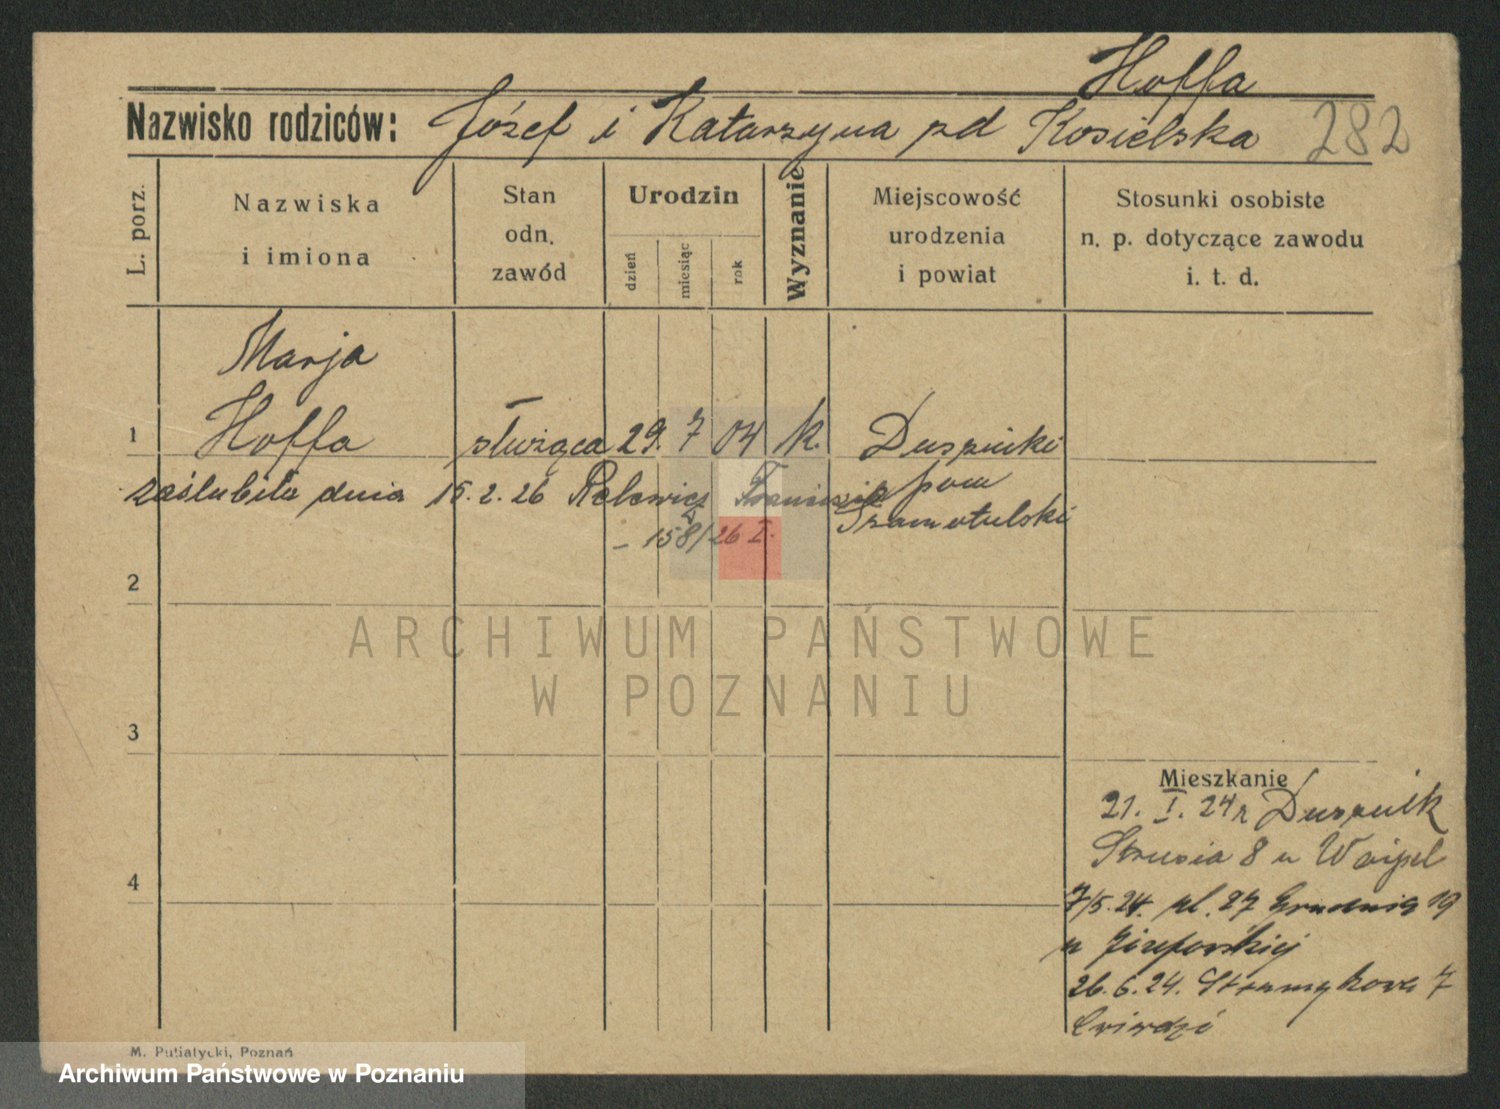 Hoffa
Nazwisko rodziców: Józef i Katarzyna zd Kosielska 282
L. porz.
Nazwiska
i imiona
Stan
odn.
zawód
Urodzin
dzień
miesiąc
rok
Wyznanie
Miejscowość
urodzenia
i powiat
Stosunki osobiste
n. p. dotyczące zawodu
i. t. d.
Marja
1 Hoffa służąca 29. 7 04 k. Duszniki
zaślubiła dnia 15. 2. 26 Relewicz Franciszek pow
Szamotulski
– 158/26 I.
2
ARCHIWUM PAŃSTWOWE
W POZNANIU
3
Mieszkanie
21. I. 24 r Dusznik
Strusia 8 u Weigel
4
7/5. 24. pl. 27 Grudnia 19
u Józefowskiej
26. 6. 24. 7
M. Putiatycki, Poznań
Archiwum Państwowe w Poznaniu